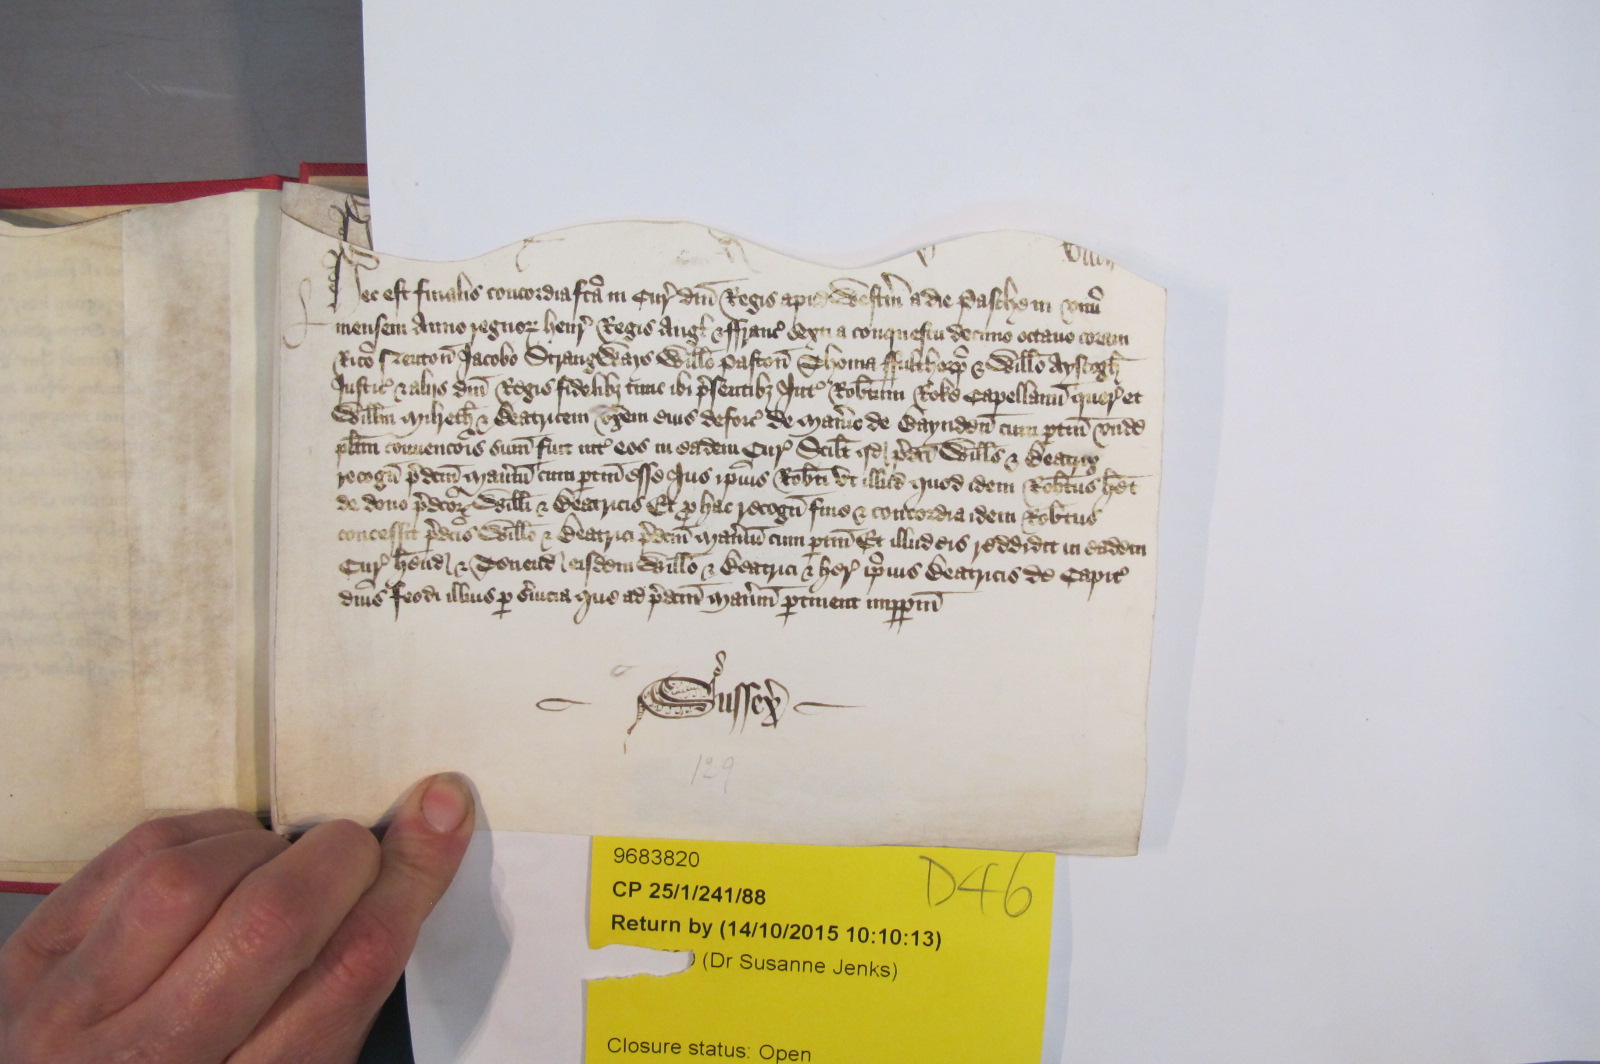 Hec est finalis concordia fcā in Cur' dnī Regis apud Westm̄ a die Pasche in vnū
mensem Anno regnor' Henr' Regis Angl' & ffranc' sexti a conquestu decimo octauo coram
Ricō Neuton̄ Jacobo Strangways Willō Paston̄ Thoma ffulthorp' & Willō Ayscogh̄
Justic' & alijs dnī Regis fidelibȝ tunc ibi p̄sentibȝ Int' Rob̄tum Roke Capellanū quer' et
Willm̄ & Beatricem vx̄em eius deforc' de Man̄io de Bayndeñ cum ptiñ vnde
pl̄itm conuencōis sum̄ fuit int' eos in eadem Cur' Scil̄t qd p̄dc̄i Will̄s & Beatrix
recogñ p̄dcm̄ Man̄iū cum ptiñ esse Jus ip̄ius Rob̄ti vt illud quod idem Rob̄tus h̄et
de dono p̄dcōr' Will̄i & Beatricis Et p hac recogñ fine & concordia idem Rob̄tus
concessit p̄dcīs Willō & Beatrici p̄dcm̄ Man̄iū cum ptiñ Et illud eis reddidit in eadem
Cur' Hend' & Tenend' eisdem Willō & Beatrici & her' ip̄ius Beatricis de Capit'
dnīs feodi illius p s̄uicia que ad p̄dcm̄ Man̄iū ptinent imppm̄
Sussex'
129
9683820
D46
CP 25/1/241/88
Return by (14/10/2015 10:10:13)
(Dr Susanne Jenks)
Closure status: Open